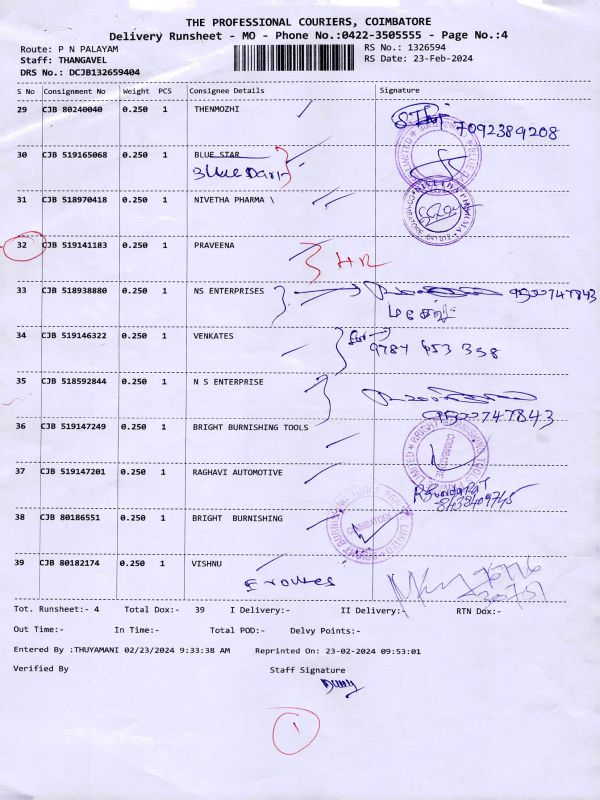 THE PROFESSIONAL COURIERS, COIMBATORE
Delivery Runsheet - MO - Phone No.:0422-3505555 - Page No.:4
Route: P N PALAYAM RS No.: 1326594
Staff: THANGAVEL RS Date: 23-Feb-2024
DRS No.: DCJB132659404
S No Consignment No Weight PCS Consignee Details Signature
29 CJB 80240040 0.250 1 THENMOZHI
7092389208
30 CJB 519165068 0.250 1 BLUE STAR
Blue Dart
31 CJB 518970418 0.250 1 NIVETHA PHARMA \
NIVETHA PHARMA
32 CJB 519141183 0.250 1 PRAVEENA
HR
33 CJB 518938880 0.250 1 NS ENTERPRISES 9500747843
34 CJB 519146322 0.250 1 VENKATES
9787 653 338
35 CJB 518592844 0.250 1 N S ENTERPRISE
9500747843
36 CJB 519147249 0.250 1 BRIGHT BURNISHING TOOLS
BRIGHT BURNISHING TOOLS PRIVATE LIMITED
COIMBATORE
37 CJB 519147201 0.250 1 RAGHAVI AUTOMOTIVE
38 CJB 80186551 0.250 1 BRIGHT BURNISHING
BRIGHT BURNISHING TOOLS PRIVATE LIMITED
COIMBATORE
39 CJB 80182174 0.250 1 VISHNU
Tot. Runsheet:- 4 Total Dox:- 39 I Delivery:- II Delivery:- RTN Dox:-
Out Time:- In Time:- Total POD:- Delvy Points:-
Entered By :THUYAMANI 02/23/2024 9:33:38 AM Reprinted On: 23-02-2024 09:53:01
Verified By Staff Signature
1